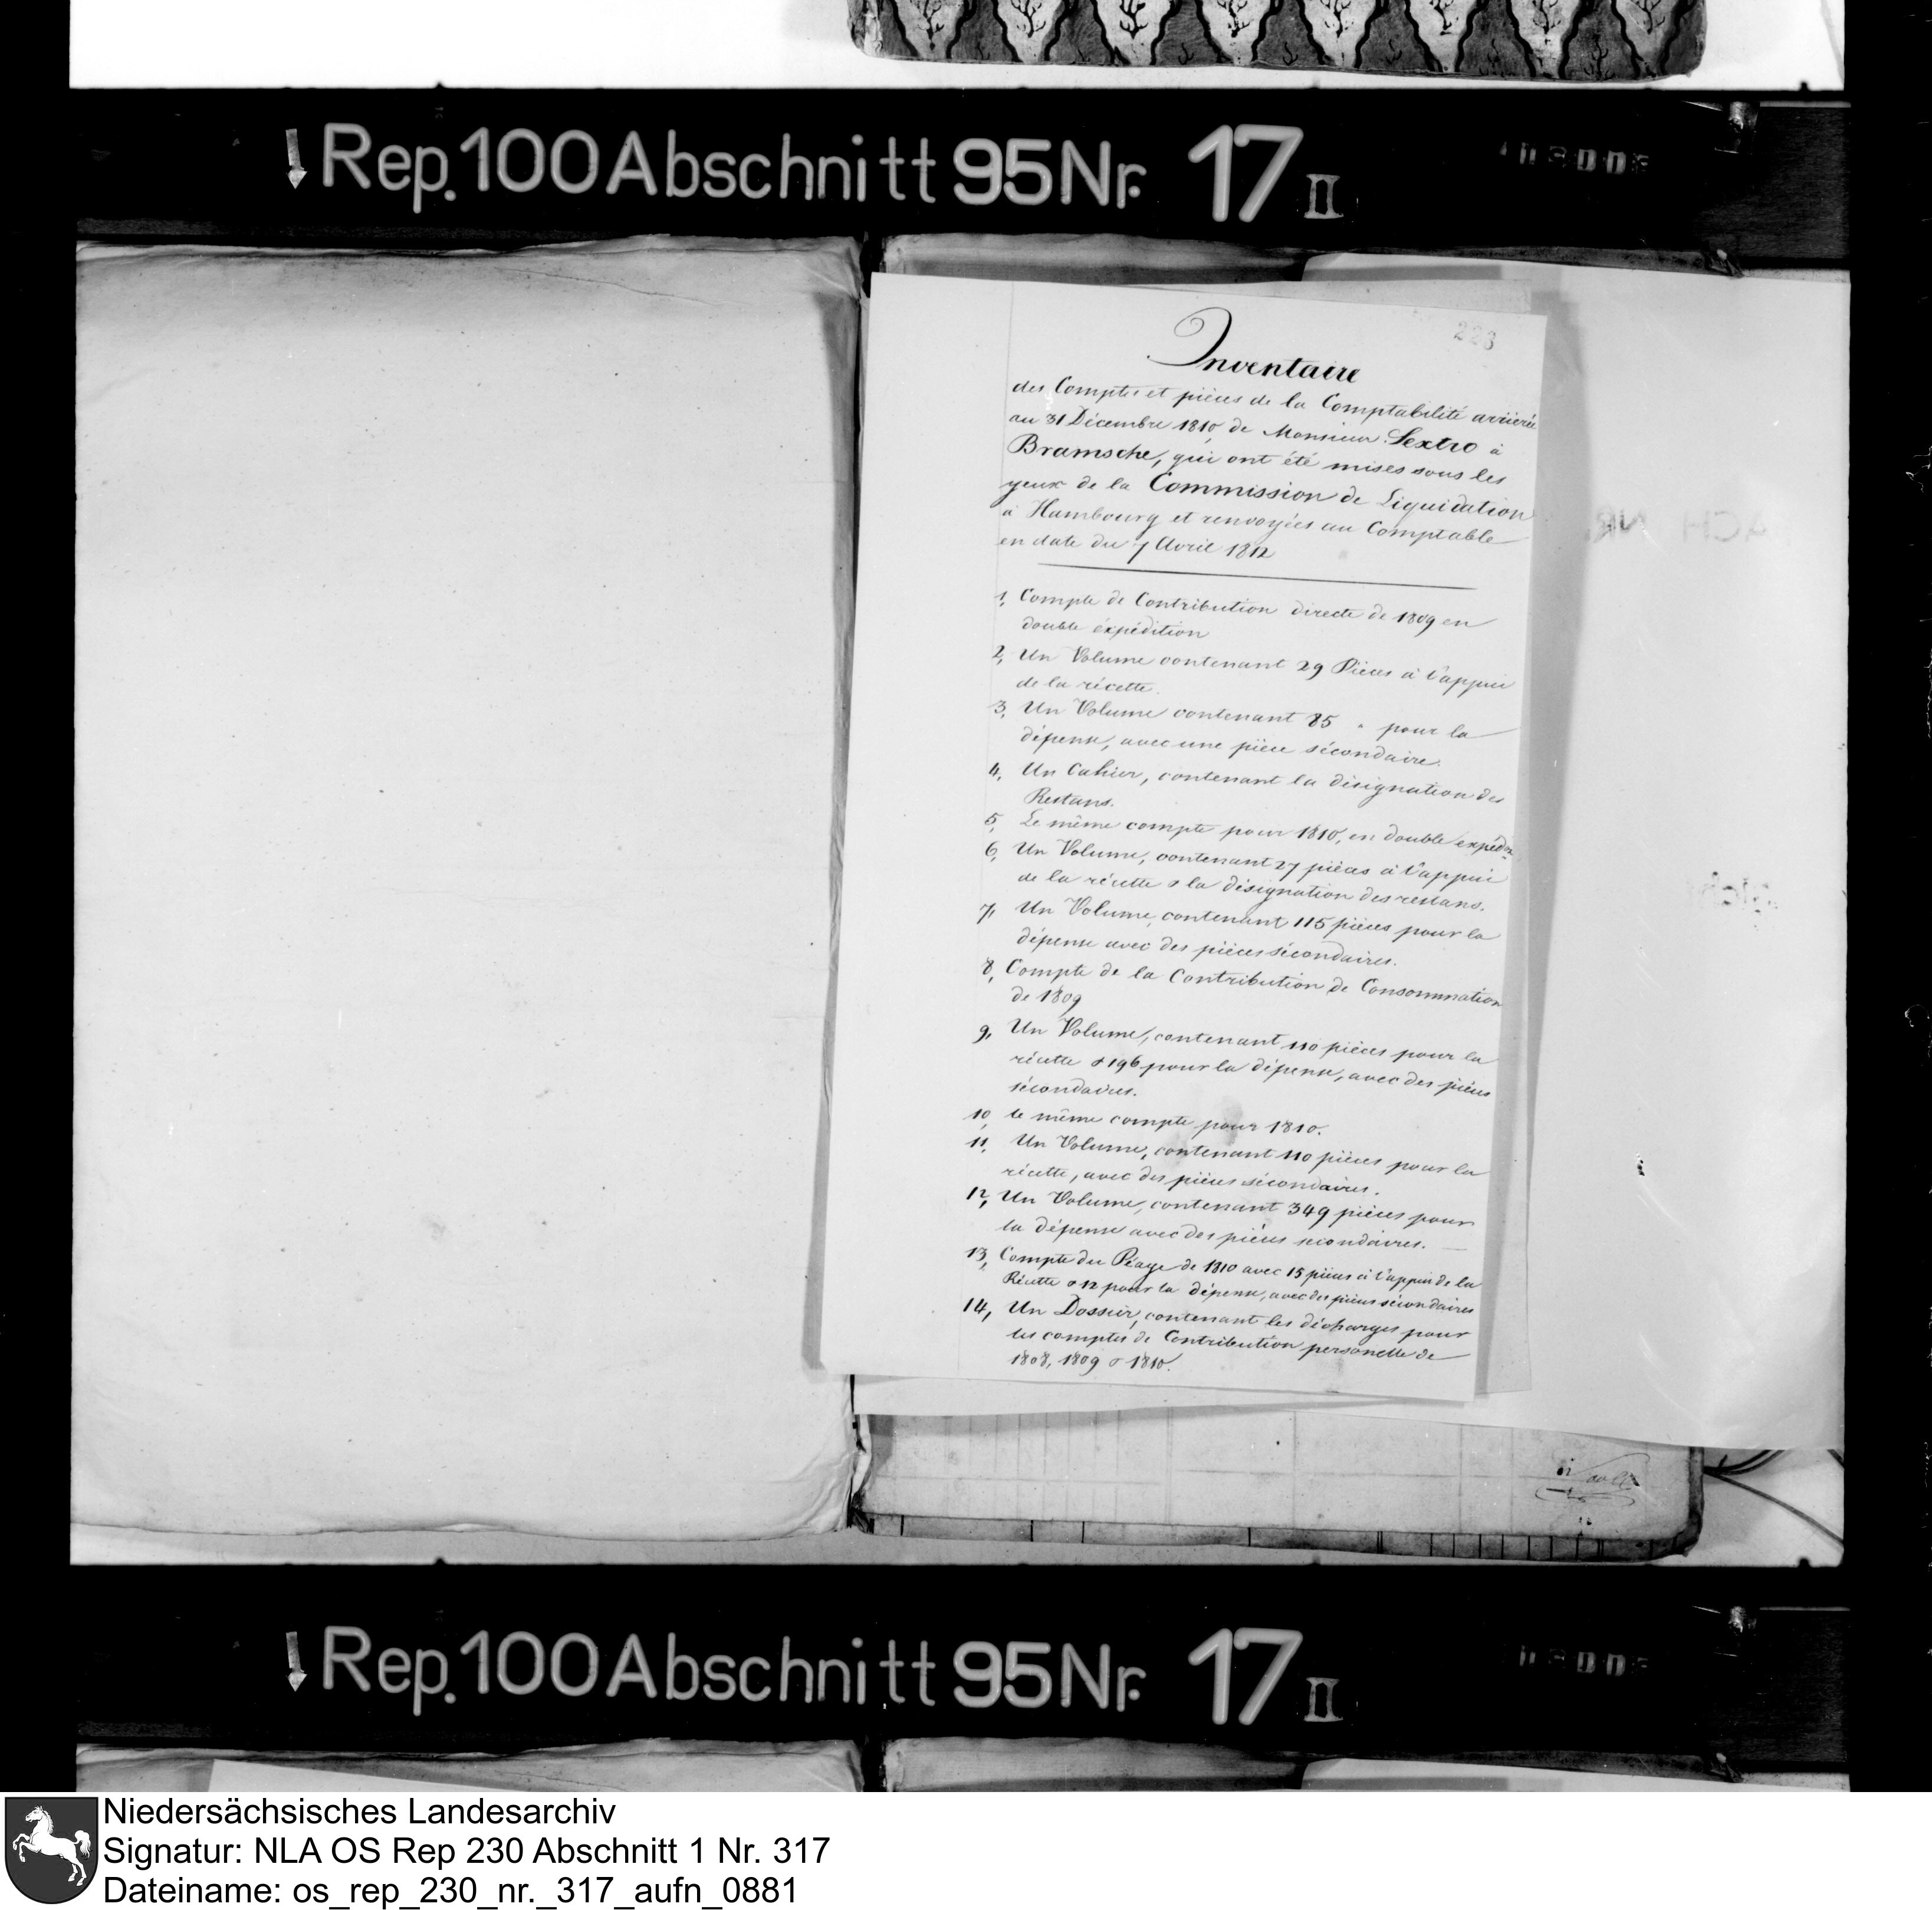 Rep. 100 Abschnitt 95 Nr. 17 II
223
Inventaire
des Comptes et pièces de la Comptabilité arriérée
au 31 Décembre 1810, de Monsieur Sextro à
Bramsche, qui ont été mises sous les
yeux de la Commission de Liquidation
à Hambourg et renvoyées au Comptable
en date du 7 Avril 1812
1, Compte de Contribution directe de 1809 en
double éxpédition
2, Un Volume contenant 29 Pièces à l'appui
de la récette.
3, Un Volume contenant 85 " pour la
dépense, avec une pièce sécondaire.
4, Un Cahier, contenant la désignation des
Restans.
5, Le même compte pour 1810, en double expédon
6, Un Volume, contenant 27 pièces à l'appui
de la récette & la désignation des restans.
7, Un Volume, contenant 115 pièces pour la
dépense avec des pièces sécondaires.
8, Compte de la Contribution de Consommation
de 1809
9, Un Volume, contenant 110 pièces pour la
récette & 196 pour la dépense, avec des pièces
sécondaires.
10, le même compte pour 1810.
11, Un Volume, contenant 110 pièces pour la
récette, avec des pièces sécondaires.
12, Un Volume, contenant 349 pièces pour
la dépense avec des pièces secondaires.
13, Compte du Péage de 1810 avec 15 pièces à l'appui de la
Récette & 12 pour la dépense, avec des pièces sécondaires
14, Un Dossier, contenant les décharges pour
les comptes de Contribution personelle de
1808, 1809 & 1810.
Rep. 100 Abschnitt 95 Nr. 17 II
Niedersächsisches Landesarchiv
Signatur: NLA OS Rep 230 Abschnitt 1 Nr. 317
Dateiname: os_rep_230_nr._317_aufn_0881